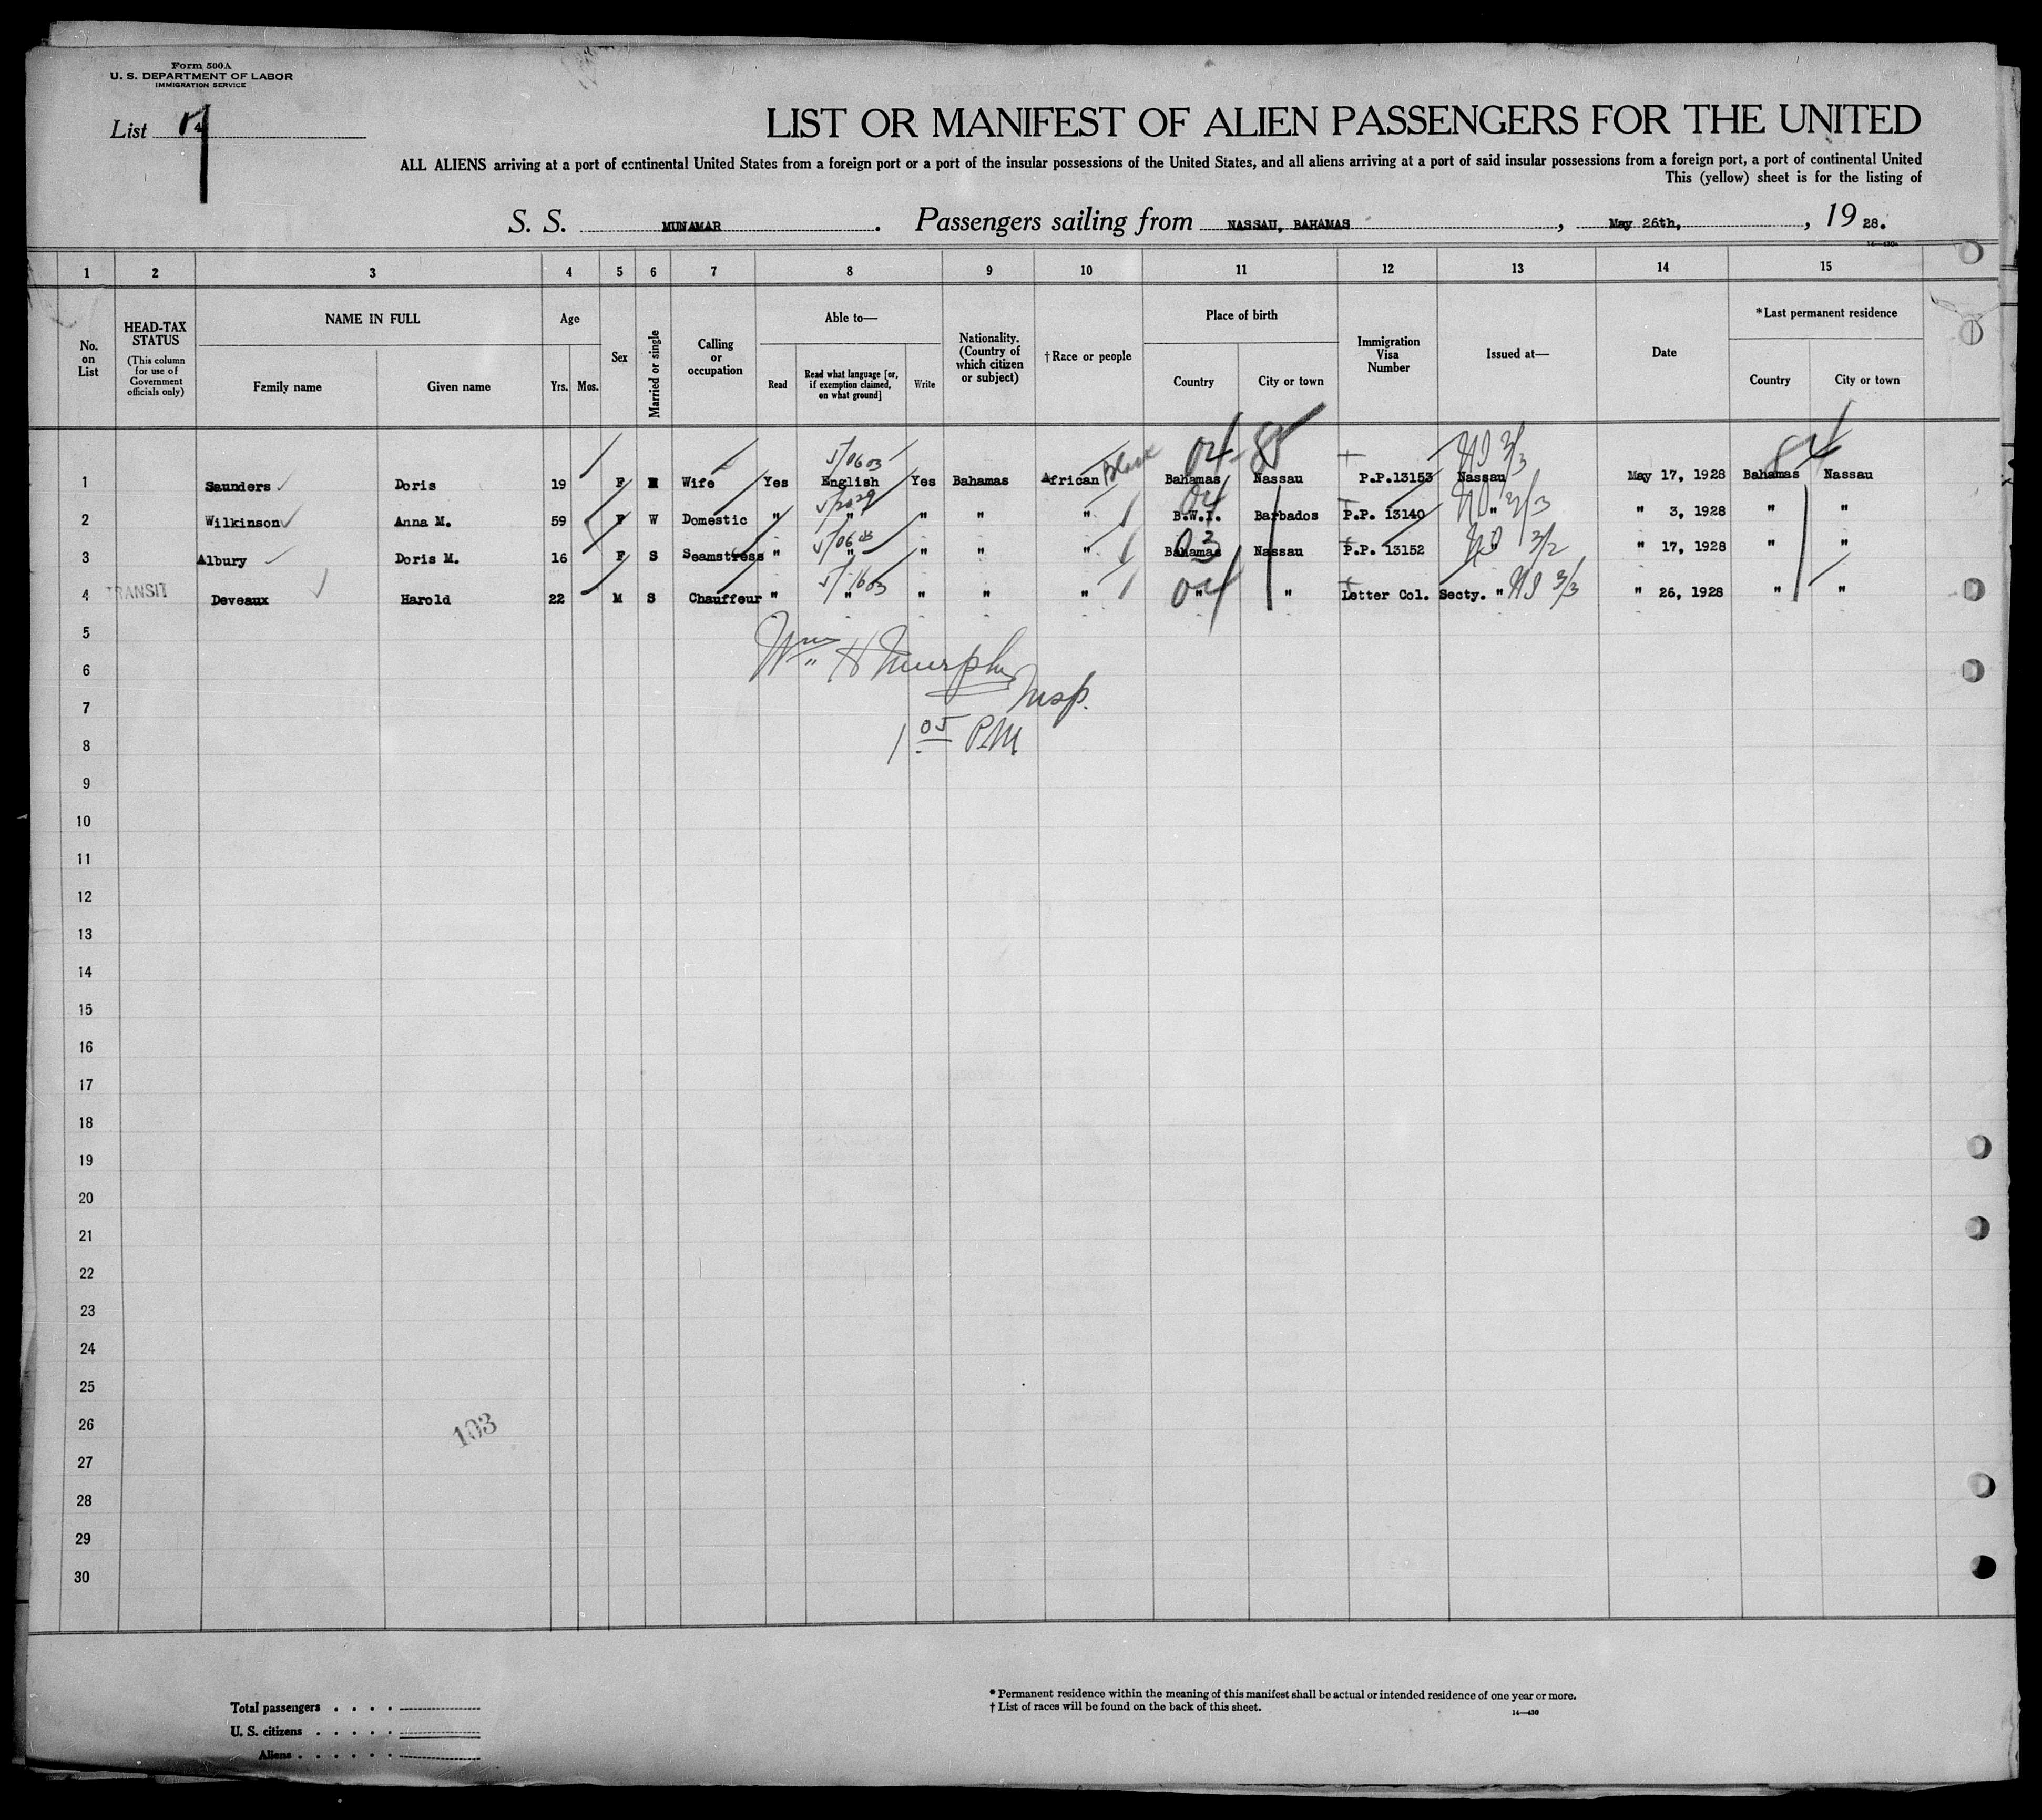 Form 500A
U. S. DEPARTMENT OF LABOR
IMMIGRATION SERVICE
List 4
LIST OR MANIFEST OF ALIEN PASSENGERS FOR THE UNITED
ALL ALIENS arriving at a port of continental United States from a foreign port or a port of the insular possessions of the United States, and all aliens arriving at a port of said insular possessions from a foreign port, a port of continental United
This (yellow) sheet is for the listing of
S. S. MUNAMAR. Passengers sailing from NASSAU, BAHAMAS, May 26th, , 19 28.
14—430
1 2 3 4 5 6 7 8 9 10 11 12 13 14 15
No. on List
HEAD-TAX STATUS
(This column for use of Government officials only)
NAME IN FULL
Family name Given name
Age
Yrs. Mos.
Sex
Married or single
Calling or occupation
Able to—
Read Read what language [or, if exemption claimed, on what ground] Write
Nationality. (Country of which citizen or subject)
†Race or people
Place of birth
Country City or town
Immigration Visa Number
Issued at—
Date
*Last permanent residence
Country City or town
04 85 84
5/0603 NS 3/3
1 Saunders Doris 19 F M Wife Yes English Yes Bahamas African Black Bahamas Nassau P.P.13153 Nassau May 17, 1928 Bahamas Nassau
5/2029 04 3/3
2 Wilkinson Anna M. 59 F W Domestic " " " " " B.W.I. Barbados P.P. 13140 " " 3, 1928 " "
5/0603 03 3/2
3 Albury Doris M. 16 F S Seamstress " " " " " Bahamas Nassau P.P. 13152 " " 17, 1928 " "
5/1603 04 NS 3/3
4 TRANSIT Deveaux Harold 22 M S Chauffeur " " " " " " " Letter Col. Secty. " " 26, 1928 " "
5
Wm H Murphy
6
Insp.
7
1 05 PM
8
9
10
11
12
13
14
15
16
17
18
19
20
21
22
23
24
25
26
103
27
28
29
30
Total passengers . . . .
U. S. citizens . . . . .
Aliens . . . . . .
* Permanent residence within the meaning of this manifest shall be actual or intended residence of one year or more.
† List of races will be found on the back of this sheet.
14—430